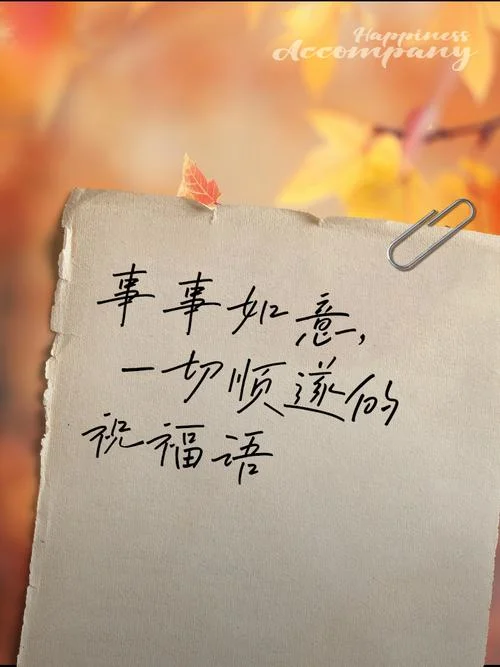 Happiness
Accompany
事事如意,
一切顺遂的
祝福语